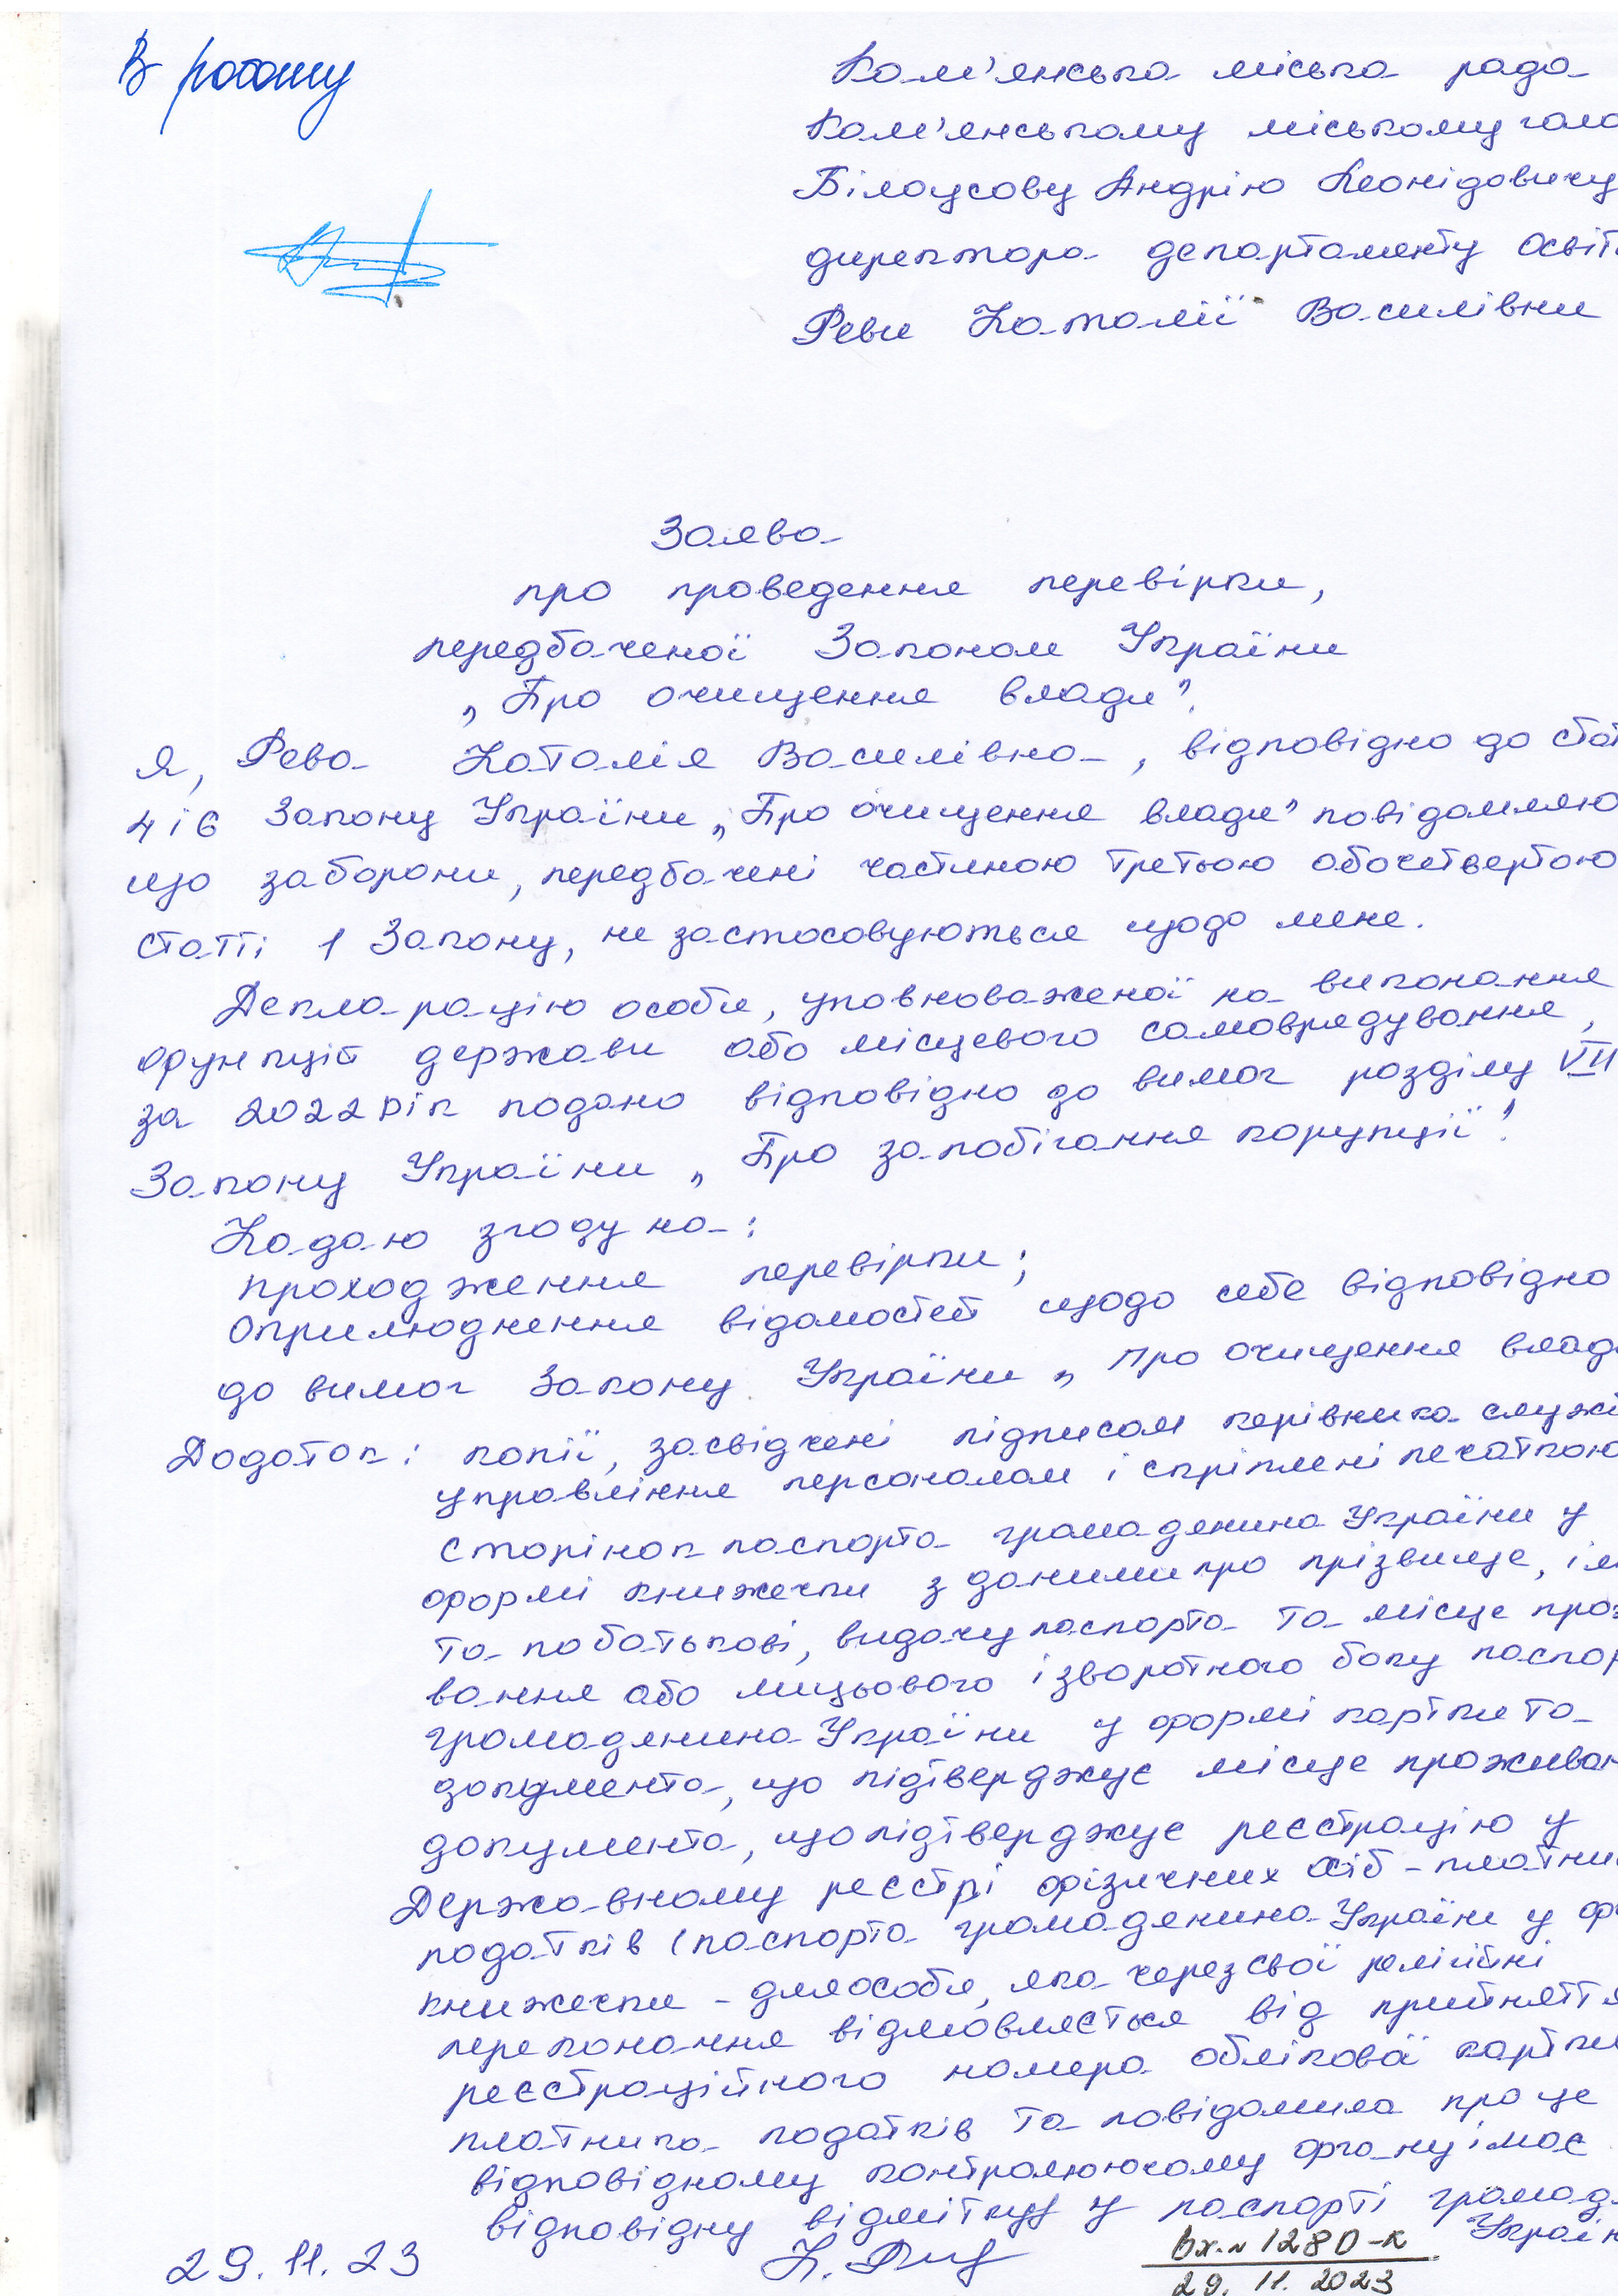 В роботу
Кам'янська міська рада
Кам'янському міському голо
Білоусову Андрію Леонідовичу
директора департаменту освіт
Реви Наталії Василівни
Заява
про проведення перевірки,
передбаченої Законом України
„Про очищення влади".
Я, Рева Наталія Василівна, відповідно до стат
4 і 6 Закону України „Про очищення влади" повідомляю
що заборони, передбачені частиною третьою або четвертою
статті 1 Закону, не застосовуються щодо мене.
Декларацію особи, уповноваженої на виконання
функцій держави або місцевого самоврядування,
за 2022 рік подано відповідно до вимог розділу VII
Закону України „Про запобігання корупції".
Надаю згоду на:
проходження перевірки;
оприлюднення відомостей щодо себе відповідно
до вимог Закону України „Про очищення влад
Додаток: копії, засвідчені підписом керівника служб
управління персоналом і скріплені печаткою
сторінок паспорта громадянина України у
формі книжечки з даними про прізвище, ім
та по батькові, видачу паспорта та місце прож
вання або лицьового і зворотного боку паспор
громадянина України у формі картки та
документа, що підтверджує місце проживан
документа, що підтверджує реєстрацію у
Державному реєстрі фізичних осіб - платни
податків (паспорта громадянина України у фо
книжечки - для особи, яка через свої релігійні
переконання відмовляється від прийняття
реєстраційного номера облікової картки
платника податків та повідомила про це
відповідному контролюючому органу і має
відповідну відмітку у паспорті громадя
Україн
29.11.23
Вх.№ 1280-к
29.11.2023